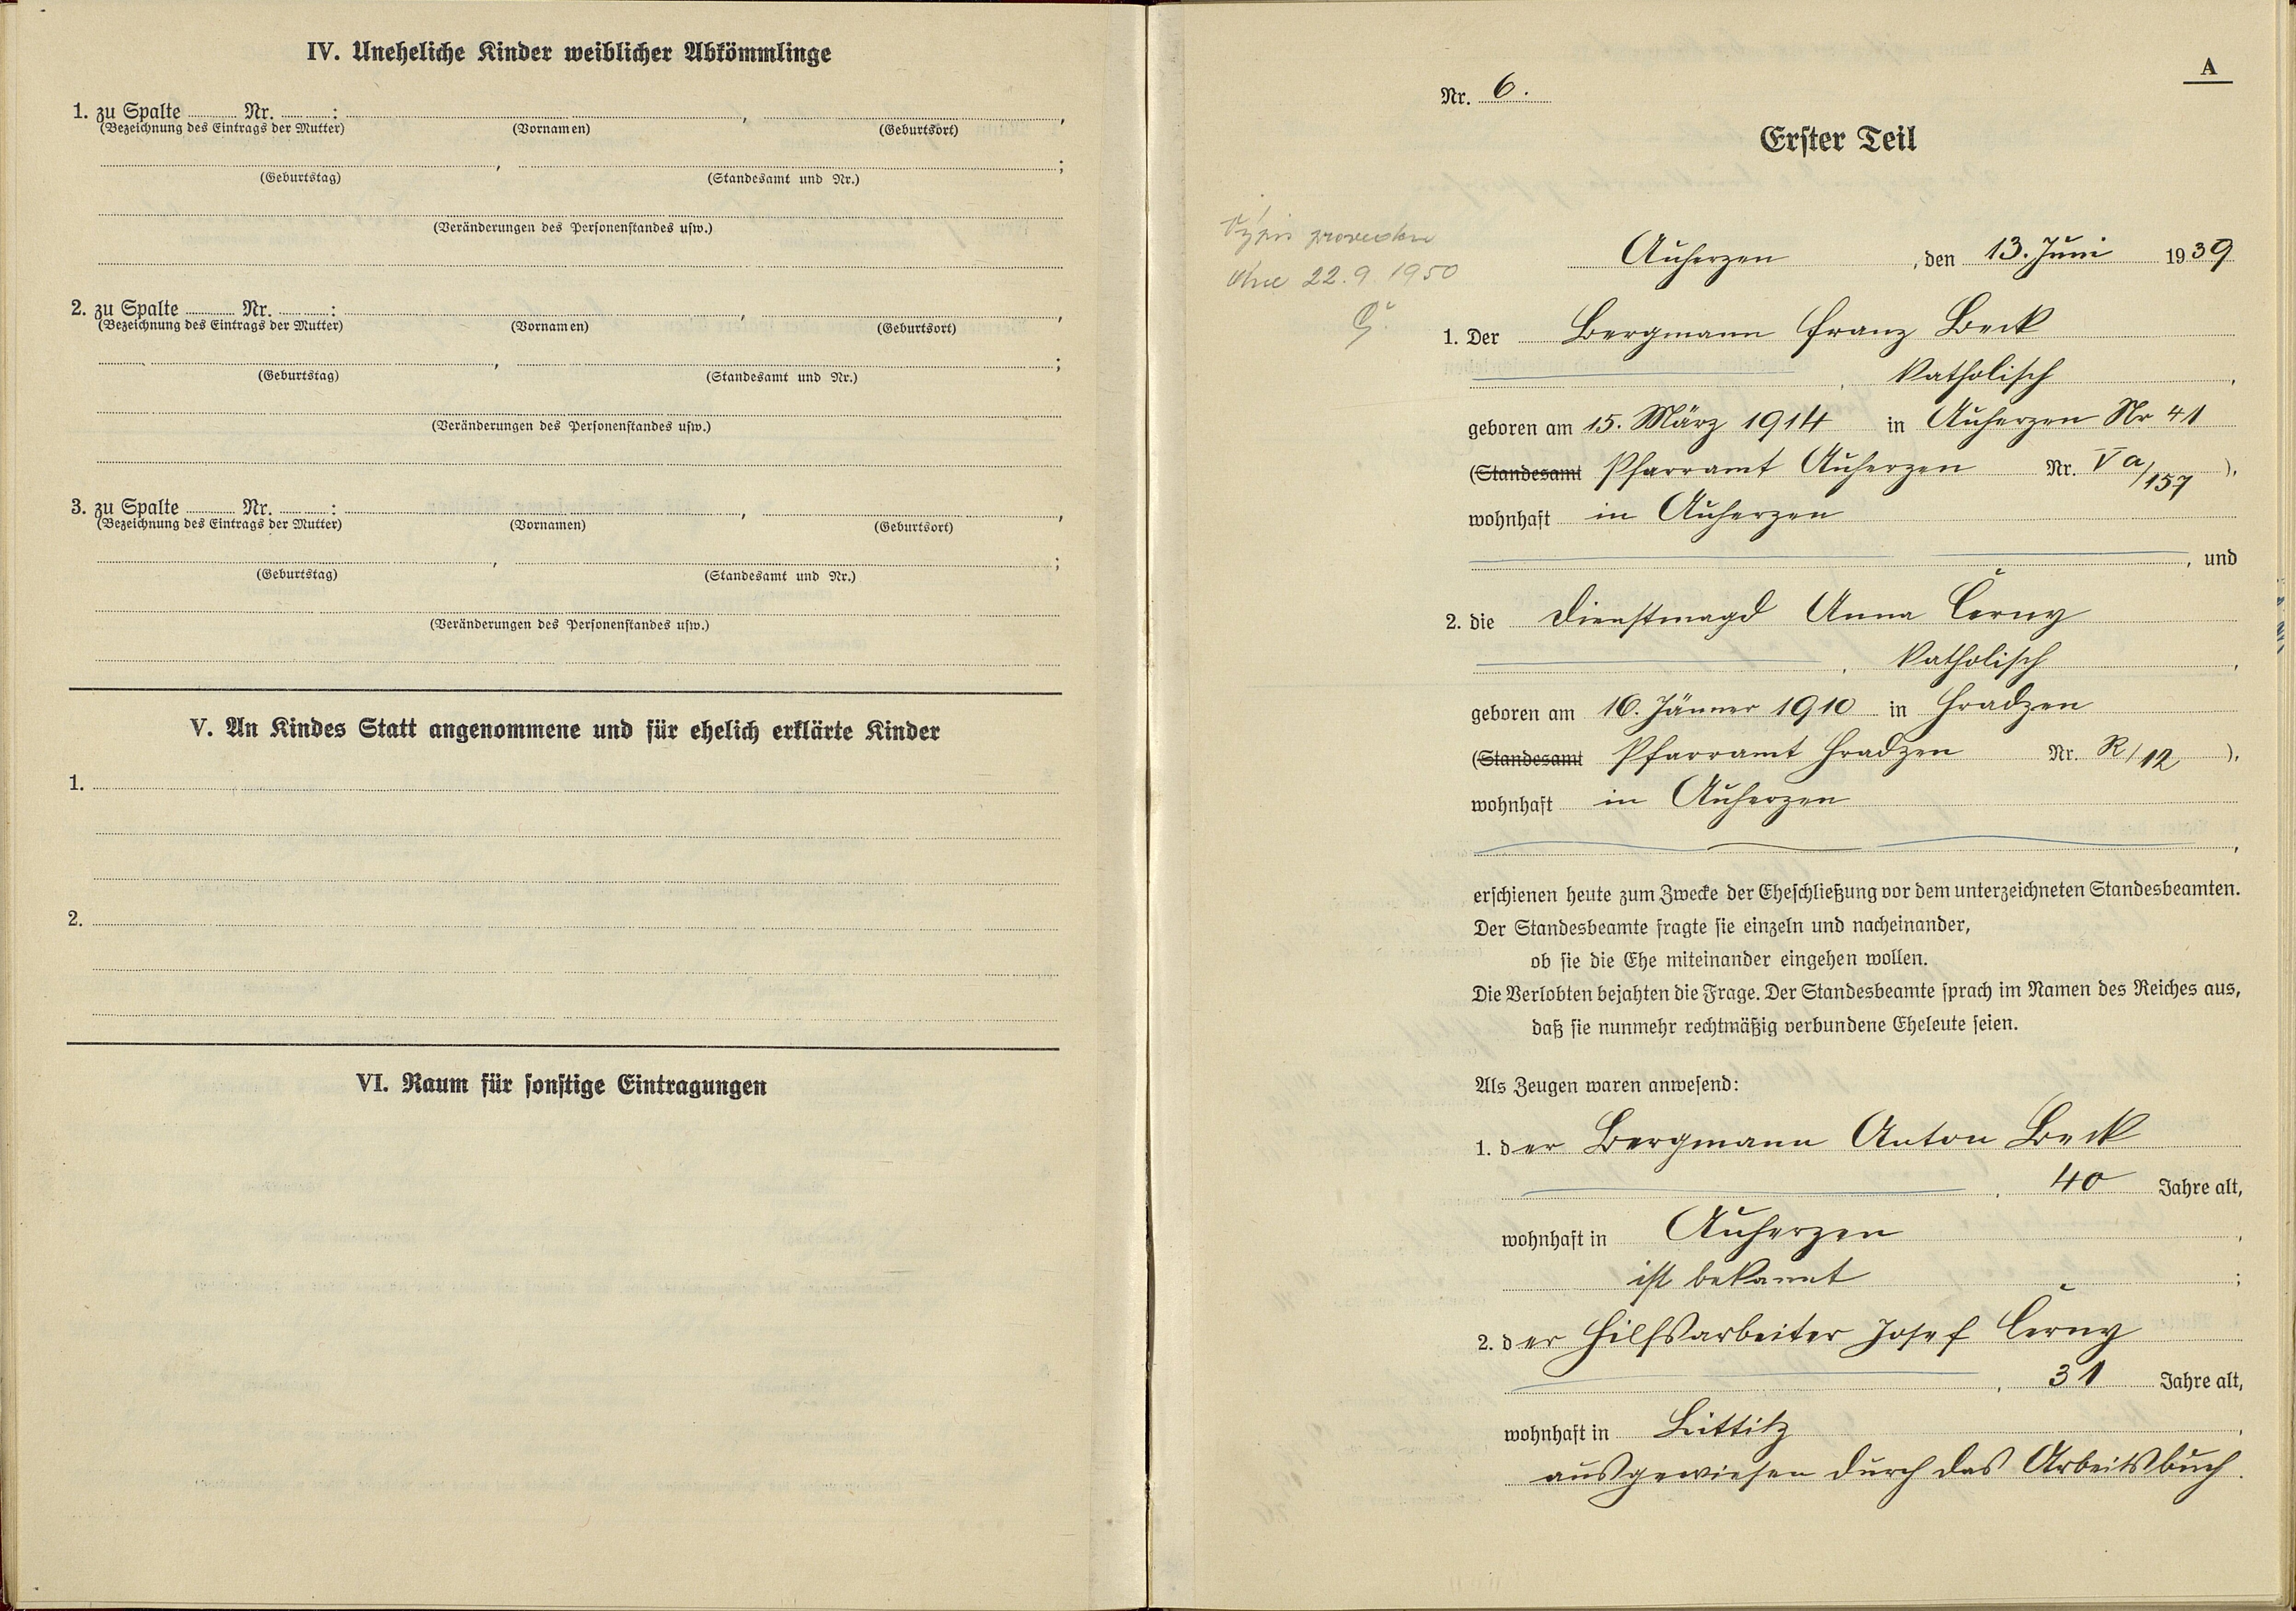 IV. Uneheliche Kinder weiblicher Abkömmlinge
1. zu Spalte ........ Nr. ........ : ........, ........,
(Bezeichnung des Eintrags der Mutter) (Vornamen) (Geburtsort)
........, ........;
(Geburtstag) (Standesamt und Nr.)
(Veränderungen des Personenstandes usw.)
2. zu Spalte ........ Nr. ........ : ........, ........,
(Bezeichnung des Eintrags der Mutter) (Vornamen) (Geburtsort)
........, ........;
(Geburtstag) (Standesamt und Nr.)
(Veränderungen des Personenstandes usw.)
3. zu Spalte ........ Nr. ........ : ........, ........,
(Bezeichnung des Eintrags der Mutter) (Vornamen) (Geburtsort)
........, ........;
(Geburtstag) (Standesamt und Nr.)
(Veränderungen des Personenstandes usw.)
V. An Kindes Statt angenommene und für ehelich erklärte Kinder
1.
2.
VI. Raum für sonstige Eintragungen
A
Nr. 6.
Erster Teil
22. 9. 1950
Auherzen, den 13. Juni 1939
1. Der Bergmann Franz Beck
, katholisch,
geboren am 15. März 1914 in Auherzen Nr 41
(Standesamt Pfarramt Auherzen Nr. V a/157),
wohnhaft in Auherzen
, und
2. die Dienstmagd Anna Černy
, katholisch,
geboren am 16. Jänner 1910 in Hradzen
(Standesamt Pfarramt Hradzen Nr. R/12),
wohnhaft in Auherzen
,
erschienen heute zum Zwecke der Eheschließung vor dem unterzeichneten Standesbeamten.
Der Standesbeamte fragte sie einzeln und nacheinander,
ob sie die Ehe miteinander eingehen wollen.
Die Verlobten bejahten die Frage. Der Standesbeamte sprach im Namen des Reiches aus,
daß sie nunmehr rechtmäßig verbundene Eheleute seien.
Als Zeugen waren anwesend:
1. der Bergmann Anton Beck
, 40 Jahre alt,
wohnhaft in Auherzen,
ist bekannt;
2. der Hilfsarbeiter Josef Černy
, 31 Jahre alt,
wohnhaft in Littitz,
ausgewiesen durch das Arbeitsbuch.